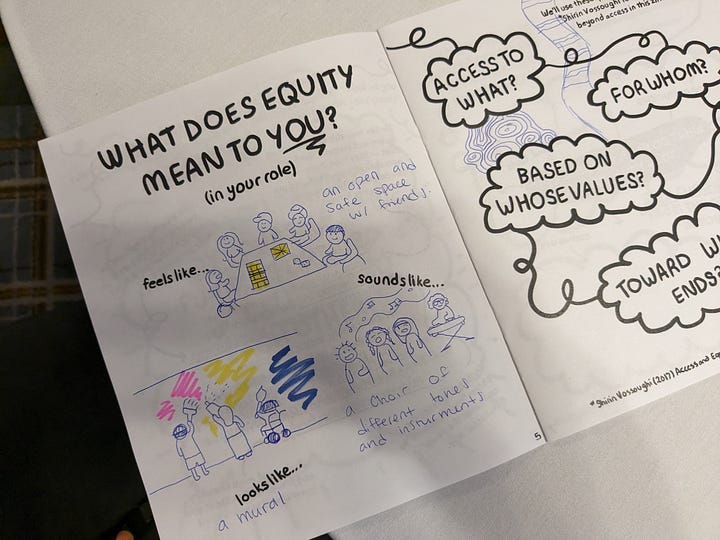 WHAT DOES EQUITY
MEAN TO YOU?
(in your role)
an open and
safe space
w/ friends.
feels like...
sounds like...
a choir of
different tones
and insturments
looks like...
a mural
5
We'll use these
*Shirin Vossoughi
beyond access in this
ACCESS TO
WHAT?
FOR WHOM?
BASED ON
WHOSE VALUES?
TOWARD
ENDS?
*Shirin Vossoughi (2017) Access and